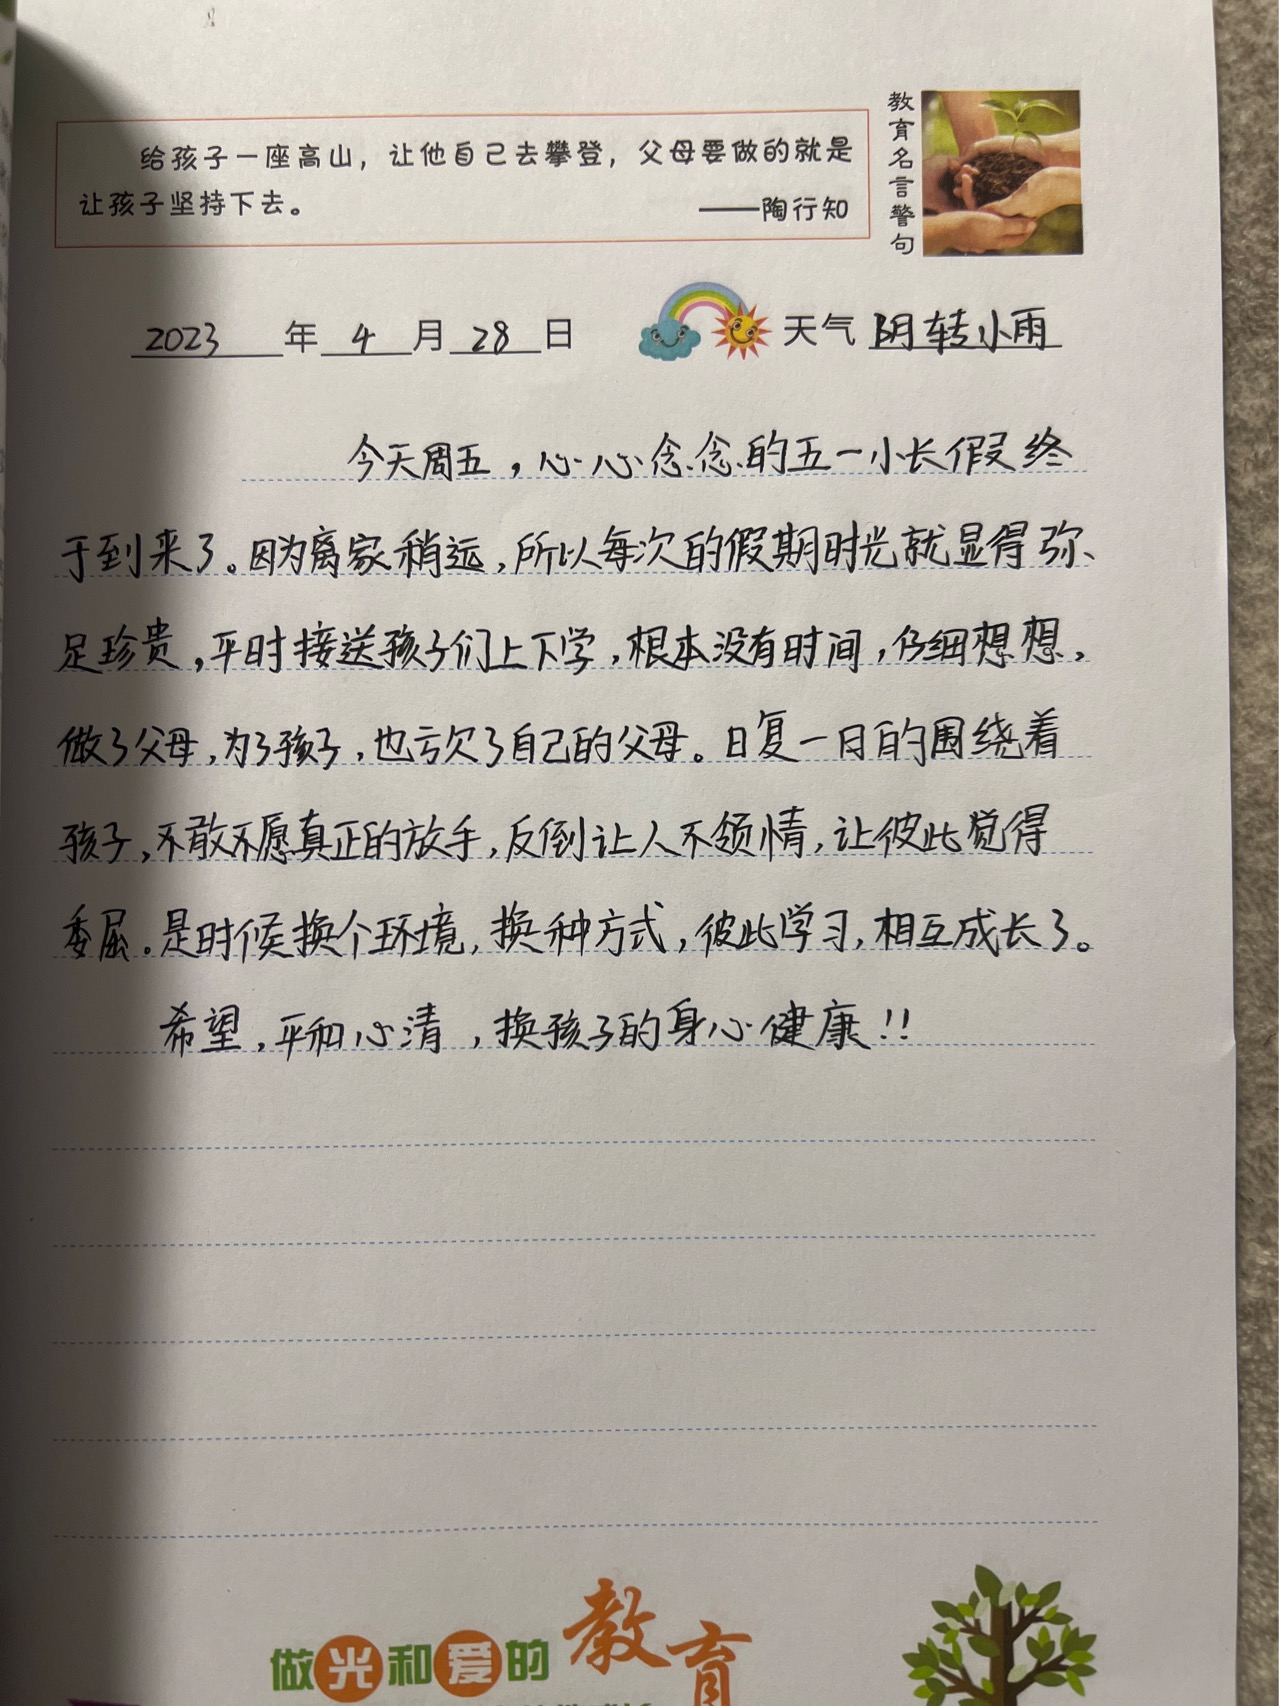 给孩子一座高山，让他自己去攀登，父母要做的就是
让孩子坚持下去。
——陶行知
教育名言警句
2023 年 4 月 28 日 天气 阴转小雨
今天周五，心心念念的五一小长假终
于到来了。因为离家稍远，所以每次的假期时光就显得弥
足珍贵，平时接送孩子们上下学，根本没有时间，仔细想想，
做了父母，为了孩子，也亏欠了自己的父母。日复一日的围绕着
孩子，不敢不愿真正的放手，反倒让人不领情，让彼此觉得
委屈。是时候换个环境，换种方式，彼此学习，相互成长了。
希望，平和心清，换孩子的身心健康！！
做光和爱的教育